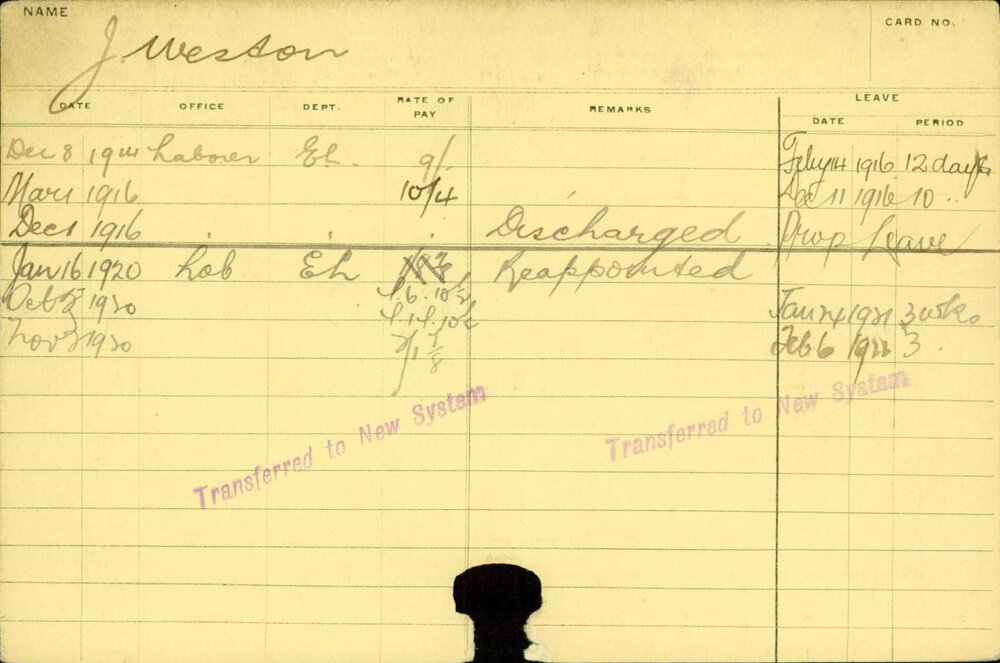 NAME
CARD NO.
J Weston
DATE OFFICE DEPT. RATE OF PAY REMARKS LEAVE
DATE PERIOD
Dec 8 1914 Laborer El. 9/ Feby 14 1916 12 days
Mar 1 1916 10/4 Dec 11 1916 10 "
Dec 1 1916 " " " Discharged Prop Leave
Jan 16 1920 Lab El Reappointed
Oct 1920 Jan 24 1921 3 wks
Nov 1920 Feb 6 1922 3 "
Transferred to New System
Transferred to New System